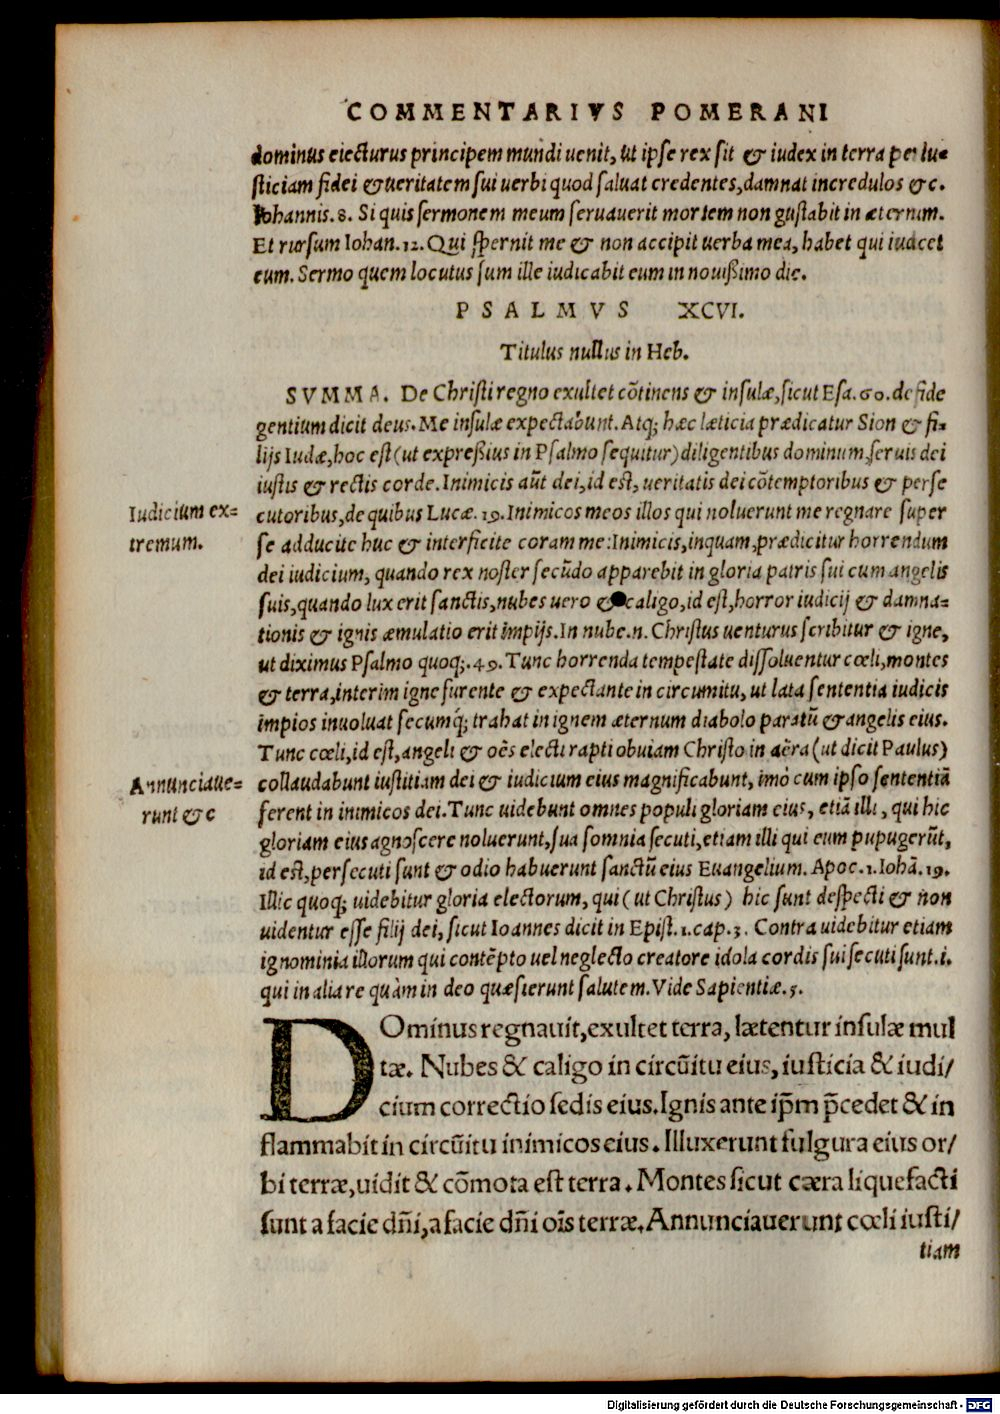 COMMENTARIVS POMERANI
dominus eiecturus principem mundi uenit, ut ipse rex sit & iudex in terra per iu-
sticiam fidei & ueritatem sui uerbi quod saluat credentes, damnat incredulos &c.
Iohannis. 8. Si quis sermonem meum seruauerit mortem non gustabit in æternum.
Et rursum Iohan. 12. Qui spernit me & non accipit uerba mea, habet qui iudicet
eum. Sermo quem locutus sum ille iudicabit eum in nouißimo die.
PSALMVS XCVI.
Titulus nullus in Heb.
SVMMA. De Christi regno exultet cōtinens & insulæ, sicut Esa. 60. de fide
gentium dicit deus. Me insulæ expectabunt. Atq; hæc læticia prædicatur Sion & fi-
lijs Iudæ, hoc est (ut expreßius in Psalmo sequitur) diligentibus dominum, seruis dei
iustis & rectis corde. Inimicis aūt dei, id est, ueritatis dei cōtemptoribus & perse
cutoribus, de quibus Lucæ. 19. Inimicos meos illos qui noluerunt me regnare super
Iudicium ex-
tremum.
se adducite huc & interficite coram me: Inimicis, inquam, prædicitur horrendum
dei iudicium, quando rex noster secūdo apparebit in gloria patris sui cum angelis
suis, quando lux erit sanctis, nubes uero & caligo, id est, horror iudicij & damna-
tionis & ignis æmulatio erit impijs. In nube.n. Christus uenturus scribitur & igne,
ut diximus Psalmo quoq;. 49. Tunc horrenda tempestate dissoluentur cœli, montes
& terra, interim igne furente & expectante in circumitu, ut lata sententia iudicis
impios inuoluat secumq́; trahat in ignem æternum diabolo paratū & angelis eius.
Tunc cœli, id est, angeli & oēs electi rapti obuiam Christo in aëra (ut dicit Paulus)
Annunciaue-
runt &c
collaudabunt iustitiam dei & iudicium eius magnificabunt, imò cum ipso sententiā
ferent in inimicos dei. Tunc uidebunt omnes populi gloriam eius, etiā illi, qui hic
gloriam eius agnoscere noluerunt, sua somnia secuti, etiam illi qui eum pupugerūt,
id est, persecuti sunt & odio habuerunt sanctū eius Euangelium. Apoc. 1. Iohā. 19.
Illic quoq; uidebitur gloria electorum, qui (ut Christus) hic sunt despecti & non
uidentur esse filij dei, sicut Ioannes dicit in Epist. 1. cap. 3. Contra uidebitur etiam
ignominia illorum qui contēpto uel neglecto creatore idola cordis sui secuti sunt .i.
qui in alia re quàm in deo quæsierunt salutem. Vide Sapientiæ. 5.
DOminus regnauit, exultet terra, lætentur insulæ mul
tæ. Nubes & caligo in circūitu eius, iusticia & iudi/
cium correctio sedis eius. Ignis ante ip̄m p̄cedet & in
flammabit in circūitu inimicos eius. Illuxerunt fulgura eius or/
bi terræ, uidit & cōmota est terra. Montes sicut cæra liquefacti
sunt a facie dn̄i, a facie dn̄i oīs terræ. Annunciauerunt cœli iusti/
tiam
Digitalisierung gefördert durch die Deutsche Forschungsgemeinschaft - DFG